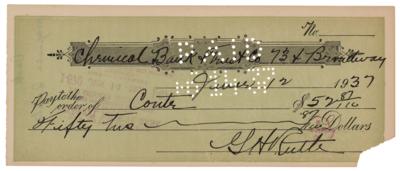 No.
Chemical Bank & Trust Co 73 & Broadway
June 12 1937
Pay to the order of Conte $52 87/100
Fifty Two 87/100 Dollars
G H Ruth